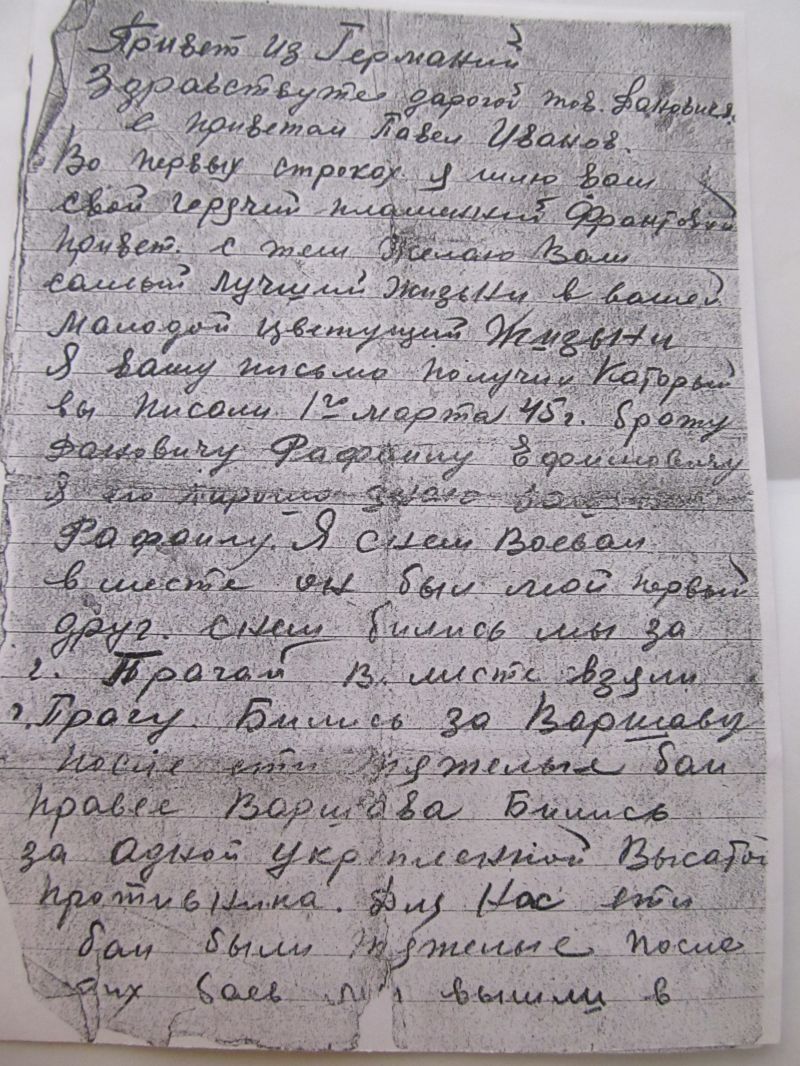 Привет из Германий
Здравствуте дарогой тов. Данович.
с приветам Павел Иванов.
Во первых строках я шлю вам
свой горячий пламенний франтовий
привет. с тем желаю Вам
самый лучший жизьни в вашей
маладой цветущий Жизьни
Я вашу письмо получил Каторый
вы писали 1го марта 45г. брату
Дановичу Рафаилу Ефимовичу
Я его харашо знаю
Рафаилу. Я снем воевал
вместе он был мой первый
друг. снем бились мы за
г. Прагай в месте взяли
г. Прагу. Бились за Варшаву
после ети тяжелых баи
правее Варшава Бились
за адной укрепленной Высатой
противника. Для Нас ети
баи были тяжелые после
баев мы вышли в